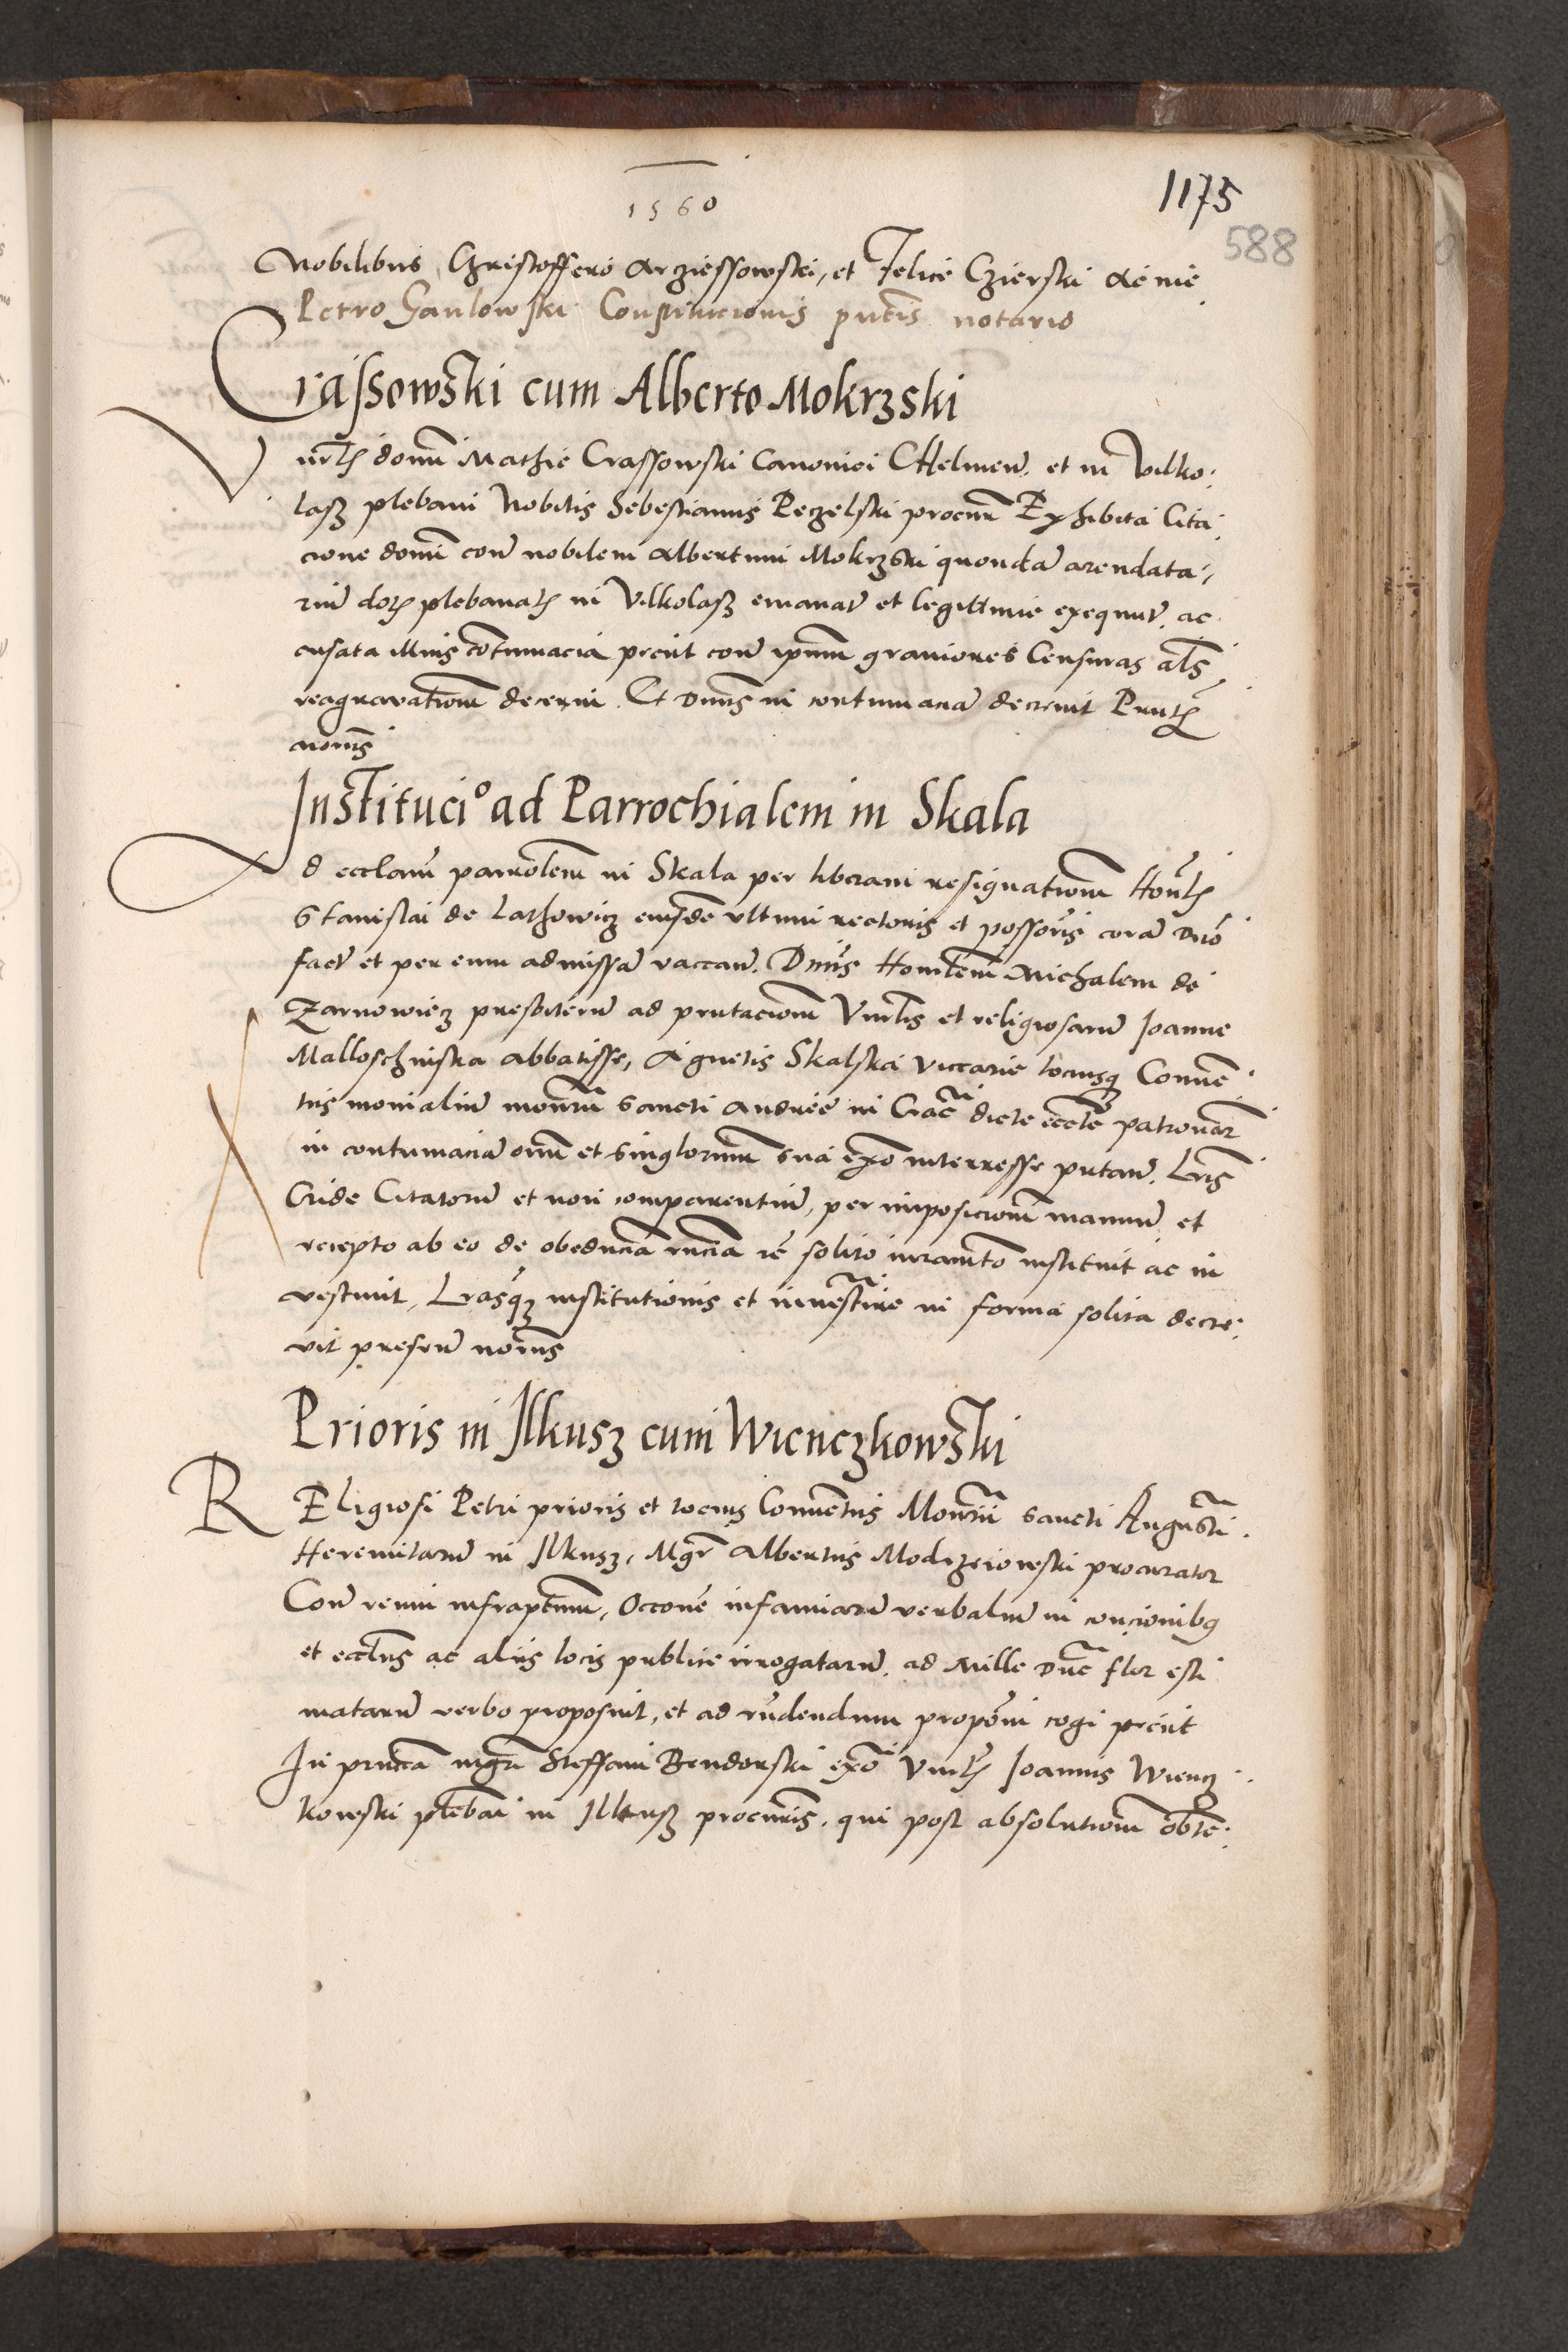 1560
1175
588
Nobilibus Christoffero Arziessowski, et Felice Czierski Ac me
Petro Gawlowski Constitucionis pntis notario
Crassowski cum Alberto Mokrzski
Vnrlis domini Mathie Crassowski Canonici CHelmen. et in Vilko:
lasz plebani Nobilis Sebestianus Peczelski procur Exhibita Cita
cione domi con nobilem Albertum Mokrzski quondam arendata,
rium dotis plebanatis in Vilkolasz emanat et legittime exequut. ac
cusata illius contumacia petiit con ipsum graviores Censuras als
reagravationem decerni. Et Dnus in contumaciam decrevit Pntibus
nonis
Institucio ad Parrochialem in Skala
Ad ecclam parrolem in Skala per liberam resignationem Honlis
Stanislai de Lathowicz eiusdem ultimi rectoris et possoris coram Dno
fact et per eum admissam vaccan. Dnus Honlem Michalem de
Zarnowiecz presbiterum ad pntacionem Vnrlis et religiosarum Joanne
Malloschinska abbatisse, Agnetis Skalska viccarie tociusq Conven
tus monialium monrii sancti Andree in Crac dicte eccle patronar
in contumaciam omn et singlorum sua exo interresse putan. Lris
Cride Citatorum et non comparentium, per imposicionem manuum et
recepto ab eo de obediencia rncia re solito iuramto instituit ac in
vestivit, Lrasq institutionis et investire in forma solita decre,
vit presen nonis
Prioris in Ilkusz cum Wienczkowski
REligiosi Petri prioris et tocius Conventus Monrii sancti Augusti
Heremitarum in Ilkusz, Mgr Albertus Modrzeiowski procurator
Con reum infraptum, Occone infamiarum verbalium in concionibq
et ecclus ac aliis locis publice irrogatarum, ad Mille Duc flor esti
matarum verbo proposuit, et ad rndendum proponi cogi petiit
In pncia mgri Steffani Bendorski exo Vnrlis Joannis Wiencz
kowski plebani in Ilkusz procuris, qui post absolutionem obte: